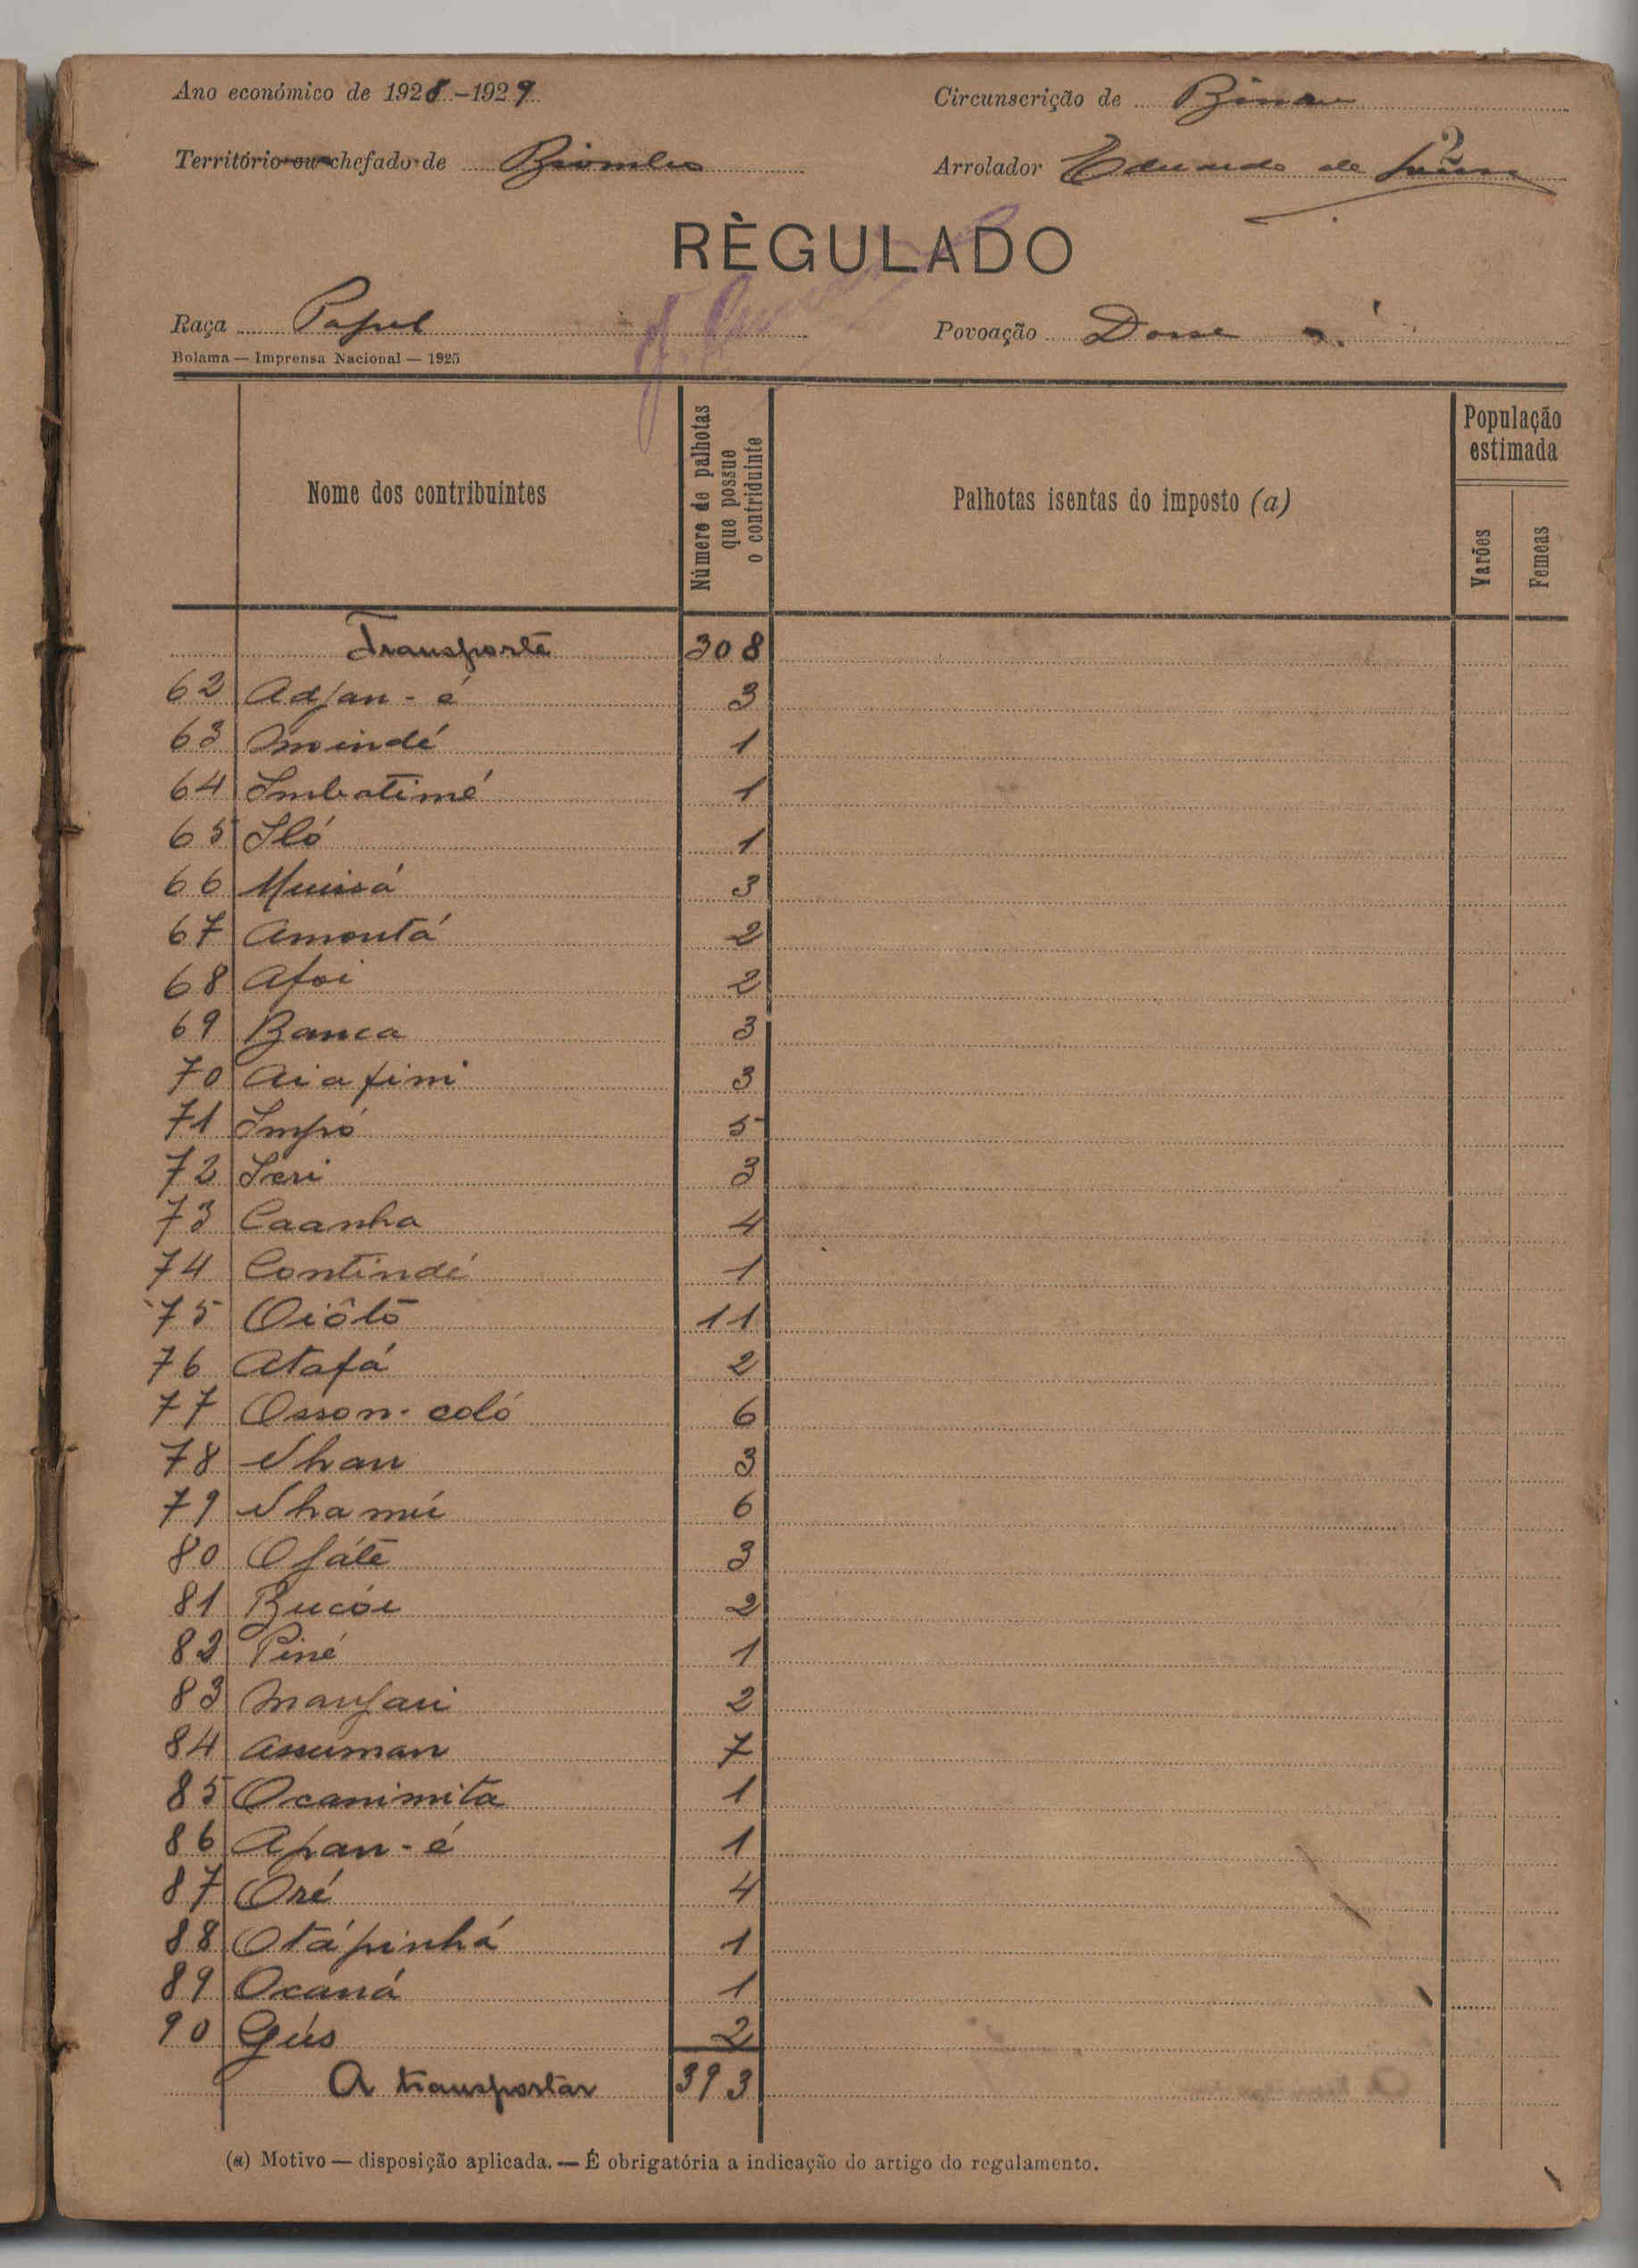 Ano económico de 1928-1929
Circunscrição de
Território ou chefado de Biombo
Arrolador Eduardo de
2
RÈGULADO
Raça Papel
Povoação
Bolama — Imprensa Nacional — 1925
Nome dos contribuintes
Número de palhotas
que possue
o contriduinte
Palhotas isentas do imposto (a)
População
estimada
Varões
Femeas
Transporte 308
62 Adjan-é 3
63 Moindé 1
64 Imbatimé 1
65 Iló 1
66 3
67 Amontá 2
68 Afoi 2
69 Banca 3
70 Aiafini 3
71 Impó 5
72 3
73 Caanha 4
74 Contindé 1
75 Oiôtō 11
76 Atafá 2
77 Osson-coló 6
78 Nhan 3
79 Nhamú 6
80 3
81 Bucói 2
82 Piné 1
83 2
84 Assuman 7
85 Ocanimita 1
86 Apan-é 1
87 Oré 4
88 Otápinhá 1
89 Ocaná 1
90 Gús 2
A transportar 393
(a) Motivo — disposição aplicada. — É obrigatória a indicação do artigo do regulamento.